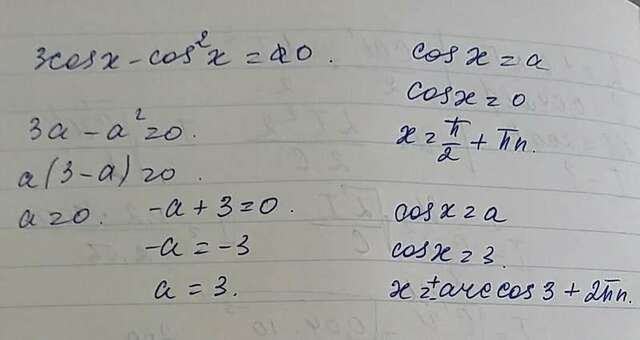 3cosx - cos²x = 0.
3a - a² = 0.
a(3 - a) = 0.
a = 0. -a + 3 = 0.
-a = -3
a = 3.
cos x = a
cosx = 0
x = π/2 + πn.
cosx = a
cosx = 3.
x = ± arccos 3 + 2πn.